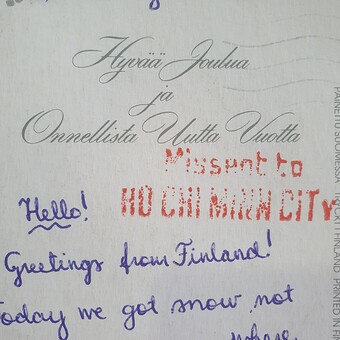 Hyvää Joulua
ja
Onnellista Uutta Vuotta
Missent to
HO CHI MINH CITY
Hello!
Greetings from Finland!
Today we got snow, not
PAINETTU SUOMESSA
FINLAND PRINTED IN FIN